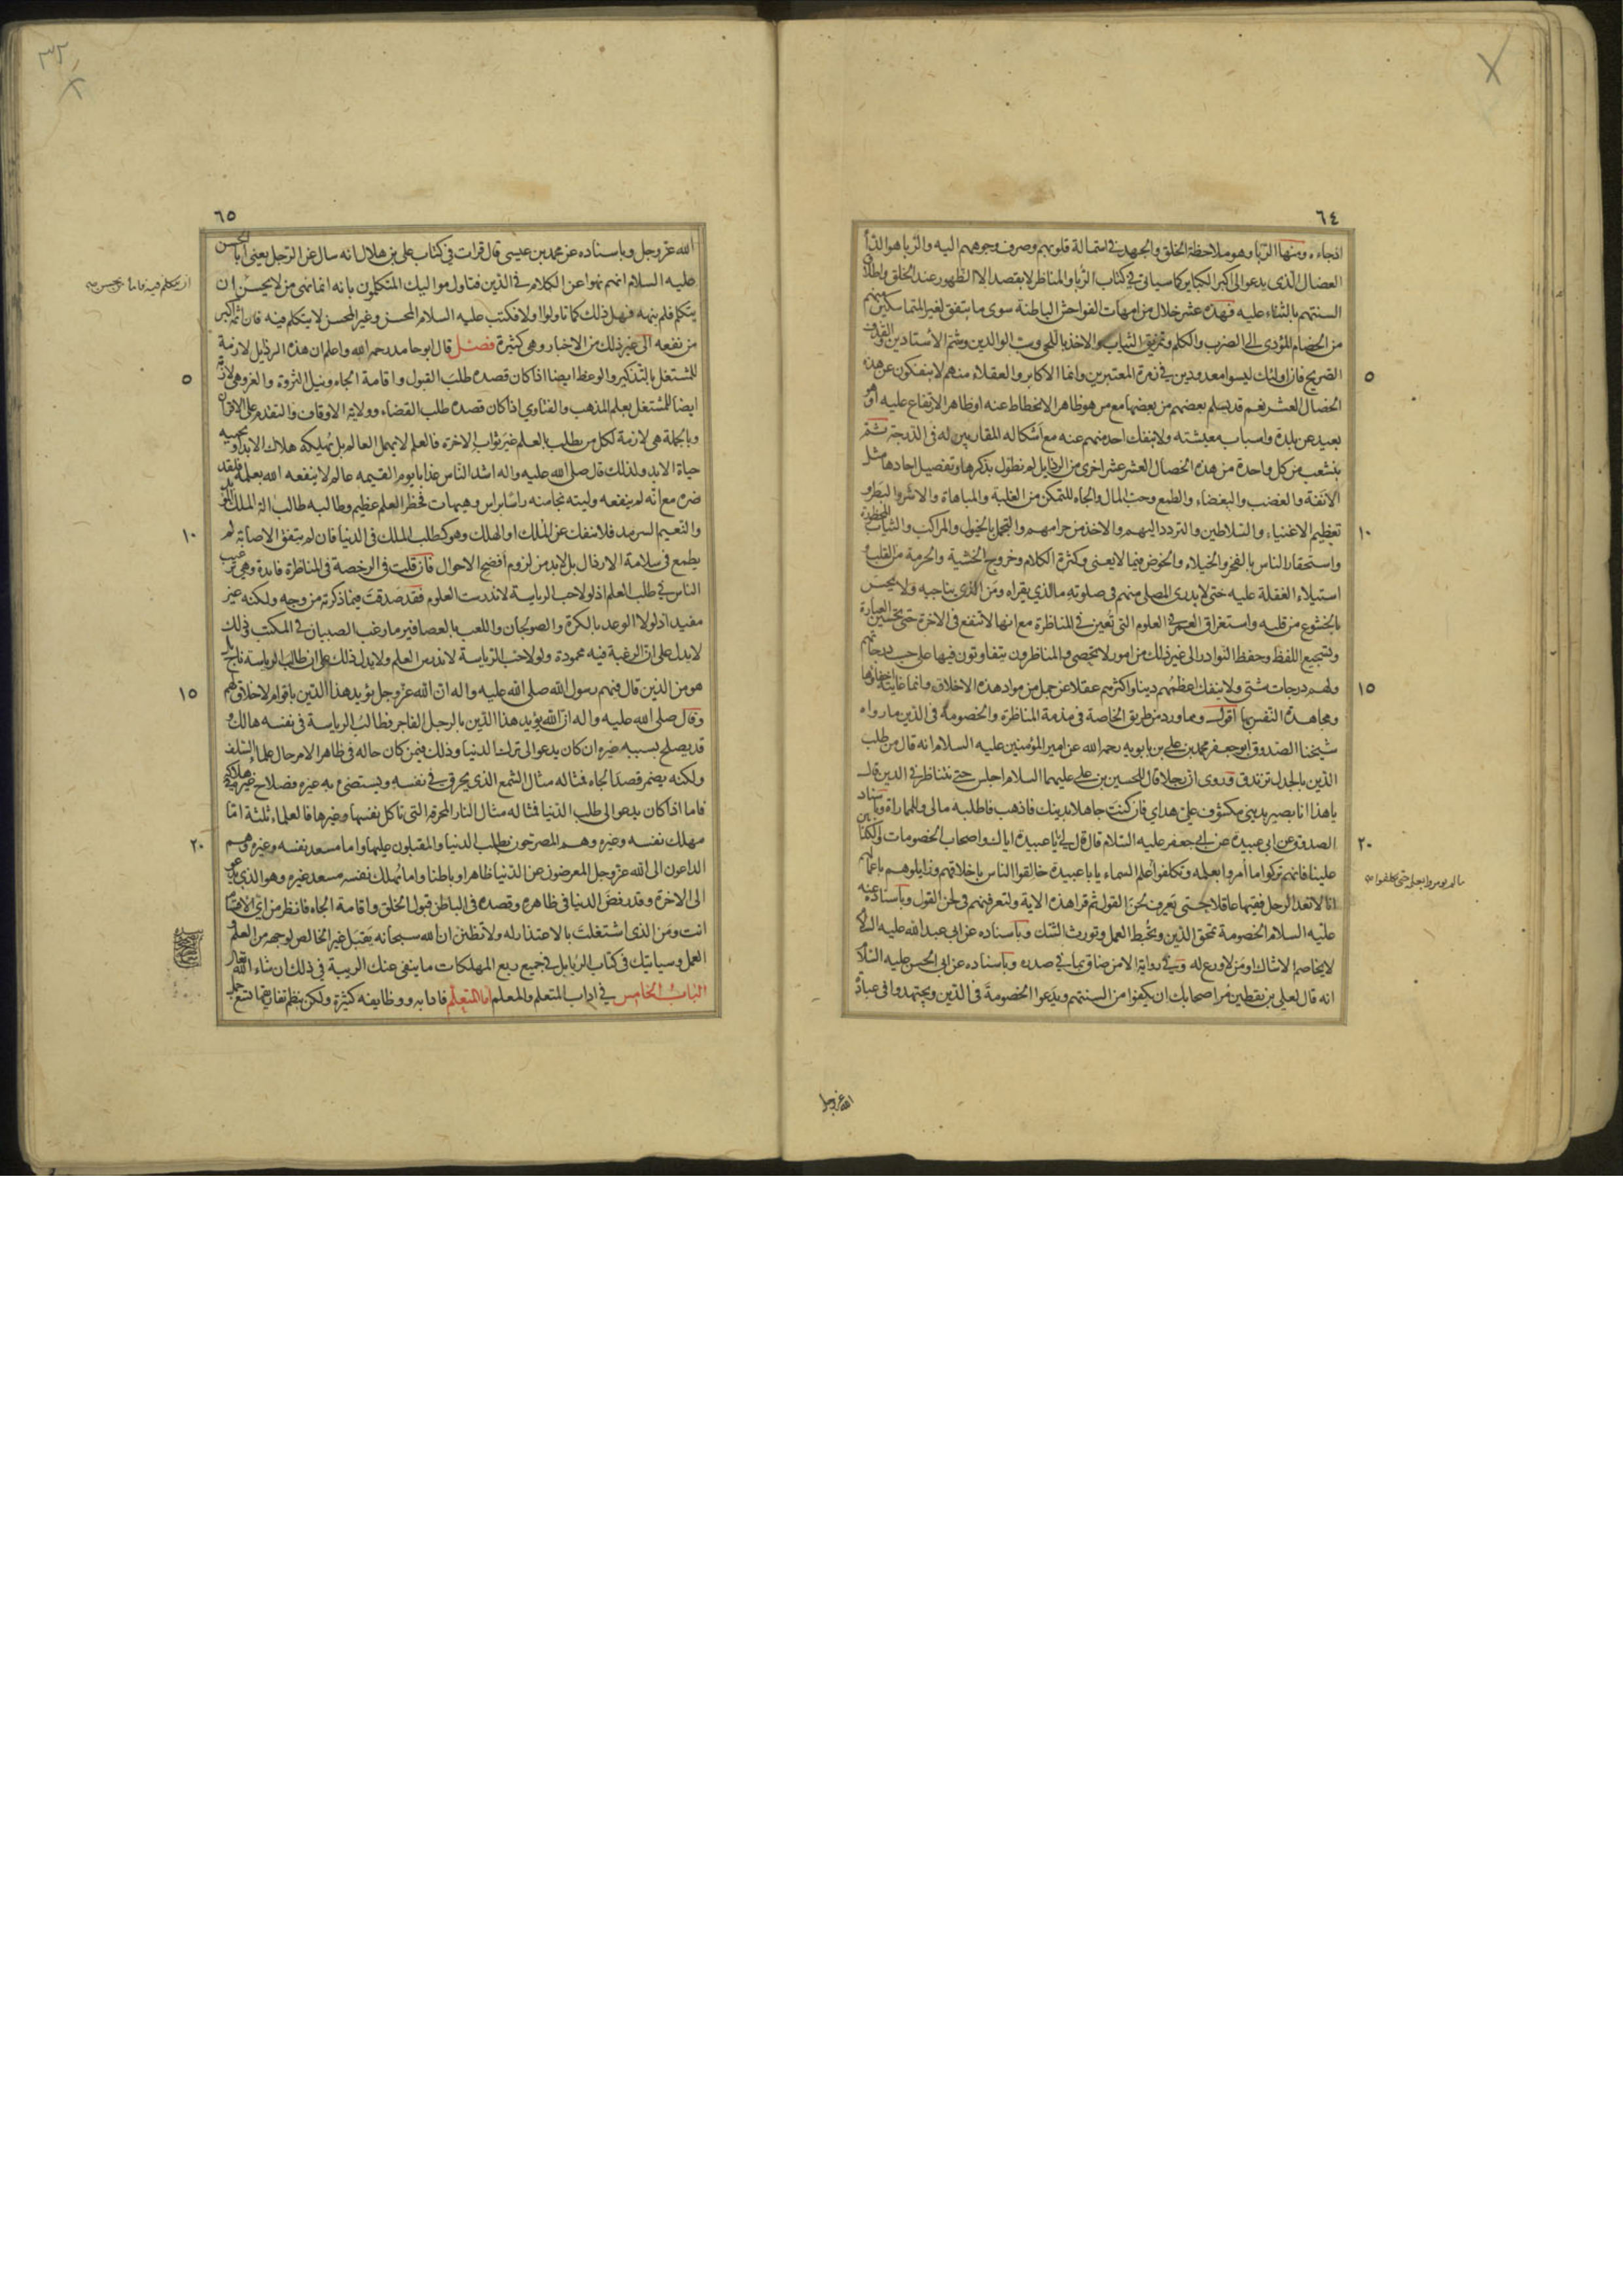 ٦٤
افجاءه ومنها الريا وهو ملاحظة الخلق والجهد في استمالة قلوبهم وصرف وجوههم اليه والريا هو الداء
العضال الذى يدعو الى اكبر الكباير كما سياتى فى كتاب الريا والمناظر لا يقصد الا الظهور عند الخلق واطلاق
السنتهم بالثناء عليه فهذه عشر خلال من امهات الفواحش الباطنة سوى ما يتفق لغير المتماسكين منهم
من الخصام المؤدى الى الضرب واللكم وتمزيق الثياب والاخذ باللحى وسب الوالدين وشتم الاستادين والقذف
٥
الصريح فان اولئك ليسوا معدودين فى زمرة المعتبرين وانما الاكابر والعقلاء منهم لا ينفكون عن هذه
الخصال العشر نعم قد يسلم بعضهم من بعضها مع من هو ظاهر الانحطاط عنه او ظاهر الارتفاع عليه او هو
بعيد عن بلده واسباب معيشته ولا ينفك احد منهم عنه مع اشكاله المقاربين له فى الدرجة ثم
ينشعب من كل واحدة من هذه الخصال العشر عشر اخرى من الرذايل لم نطول بذكرها وتفصيل احادها مثل
الانفة والغضب والبغضاء والطمع وحب المال والجاه للتمكن من الغلبة والمباهاة والاشر والبطر و
١٠
تعظيم الاغنياء والسلاطين والتردد اليهم والاخذ من حرامهم والتجمل بالخيول والمراكب والثياب المحظورة
واستحقار الناس بالفخر والخيلاء والخوض فيما لا يعنى وكثرة الكلام وخروج الخشية والحرمة من القلب و
استيلاء الغفلة عليه حتى لا يدرى المصلى منهم فى صلوته ما الذى يقراه ومن الذى يناجيه ولا يحس
بالخشوع من قلبه واستغراق العمر فى العلوم التى تعين فى المناظرة مع انها لا تنفع فى الاخرة حتى تحسين العبارة
وتسجيع اللفظ وحفظ النوادر الى غير ذلك من امور لا تحصى والمناظرون يتفاوتون فيها على حسب درجاتهم
١٥
ولهم درجات شتى ولا ينفك اعظمهم دينا واكثرهم عقلا عن جمل من مواد هذه الاخلاق وانما غايته اخفاؤها
ومجاهدة النفس بها اقول ومما ورد من طريق الخاصة فى مذمة المناظرة والخصومة فى الدين ما رواه
شيخنا الصدوق ابو جعفر محمد بن على بن بابويه رحمه الله عن امير المؤمنين عليه السلام انه قال من طلب
الدين بالجدل تزندق وروى ان رجلا قال للحسين بن على عليهما السلام اجلس حتى نتناظر فى الدين قال
ياهذا انا بصير بدينى مكشوف على هداى فان كنت جاهلا بدينك فاذهب فاطلبه مالى وللمماراة وباسناد
٢٠
الصدوق عن ابى عبيدة عن ابى جعفر عليه السلام قال قال لى يا با عبيدة اياك واصحاب الخصومات والكذابين
علينا فانهم تركوا ما امروا بعلمه وتكلفوا علم السماء يا با عبيدة خالقوا الناس باخلاقهم وزايلوهم باعمالهم
انا لا نعد الرجل فقيها عاقلا حتى يعرف لحن القول ثم قرا هذه الاية ولتعرفنهم فى لحن القول وباسناده عنه
عليه السلام الخصومة تمحق الدين وتحبط العمل وتورث الشك وباسناده عن ابى عبد الله عليه السلام
لا يخاصم الا شاك او من لا ورع له وفى رواية الا من ضاق بما فى صدره وباسناده عن ابى الحسن عليه السلام
انه قال لعلى بن يقطين مر اصحابك ان يكفوا من السنتهم ويدعوا الخصومة فى الدين ويجتهدوا فى عبادة
الله عز وجل
٦٥
الله عز وجل وباسناده عن محمد بن عيسى قال قرات فى كتاب على بن هلال انه سال عن الرجل يعنى ابا الحسن
عليه السلام انهم نهوا عن الكلام فى الدين فتاول مواليك المتكلمون بانه انما نهى من لا يحسن ان
يتكلم فلم ينهه فهل ذلك كما تاولوا ولا فكتب عليه السلام المحسن وغير المحسن لا يتكلم فيه فان اثمه اكبر
من نفعه الى غير ذلك من الاخبار وهى كثيرة فصل قال ابو حامد رحمه الله واعلم ان هذه الرذايل لازمة
٥
للمشتغل بالتذكير والوعظ ايضا اذا كان قصده طلب القبول واقامة الجاه ونيل الثروة والعز وهى لازمة
ايضا للمشتغل بعلم المذهب والفتاوى اذا كان قصده طلب القضاء وولاية الاوقاف والتقدم على الاقران
وبالجملة هى لازمة لكل من يطلب بالعلم غير ثواب الاخرة فالعلم لا يهمل العالم بل يهلكه هلاك الابد او يحييه
حياة الابد ولذلك قال صلى الله عليه واله اشد الناس عذابا يوم القيمه عالم لا ينفعه الله بعلمه فلقد
ضره مع انه لم ينفعه وليته نجا منه راسا براس وهيهات فخطر العلم عظيم وطالبه طالب الملك المؤبد
١٠
والنعيم السرمد فلا ينفك عن الملك او الهلك وهو كطلب الملك فى الدنيا فان لم يتفق الاصابة لم
يطمع فى سلامة الارذال بل لابد من لزوم افضح الاحوال فان قلت فى الرخصة فى المناظرة فايدة وهى ترغيب
الناس فى طلب العلم اذ لولا حب الرياسة لاندرست العلوم فقد صدقت فيما ذكرته من وجه ولكنه غير
مفيد اذ لولا الوعد بالكرة والصولجان واللعب بالعصافير ما رغب الصبيان فى المكتب وذلك
لا يدل على ان الرغبة فيه محمودة ولولا حب الرياسة لاندرس العلم ولا يدل ذلك على ان طالب الرياسة ناج بل
١٥
هو من الذين قال فيهم رسول الله صلى الله عليه واله ان الله عز وجل يؤيد هذا الدين باقوام لا خلاق لهم
وقال صلى الله عليه واله ان الله يؤيد هذا الدين بالرجل الفاجر فطالب الرياسة فى نفسه هالك و
قد يصلح بسببه غيره ان كان يدعو الى ترك الدنيا وذلك فيمن كان حاله فى ظاهر الامر حال علماء السلف
ولكنه يضمر قصد الجاه فمثاله مثال الشمع الذى يحرق فى نفسه ويستضىء به غيره فصلاح غيره فى هلاكه
فاما اذا كان يدعو الى طلب الدنيا فمثاله مثال النار المحرقة التى تاكل نفسها وغيرها فالعلماء ثلثة اما
٢٠
مهلك نفسه وغيره وهم المصرحون بطلب الدنيا والمقبلون عليها واما مسعد نفسه وغيره وهم
الداعون الى الله عز وجل المعرضون عن الدنيا ظاهرا وباطنا واما مهلك نفسه مسعد غيره وهو الذى يدعو
الى الاخرة وقد رفض الدنيا فى ظاهره وقصده فى الباطن قبول الخلق واقامة الجاه فانظر من اى الاقسام
انت ومن الذى اشتغلت بالاعتداد له ولا تظنن ان الله سبحانه يقبل غير الخالص لوجهه من العلم و
العمل وسياتيك فى كتاب الريا بل فى جميع ربع المهلكات ما ينفى عنك الريبة فى ذلك ان شاء الله تعالى
الباب الخامس فى اداب المتعلم والمعلم اما المتعلم فادابه ووظايفه كثيرة ولكن ينظم تفاريقها تسع جمل